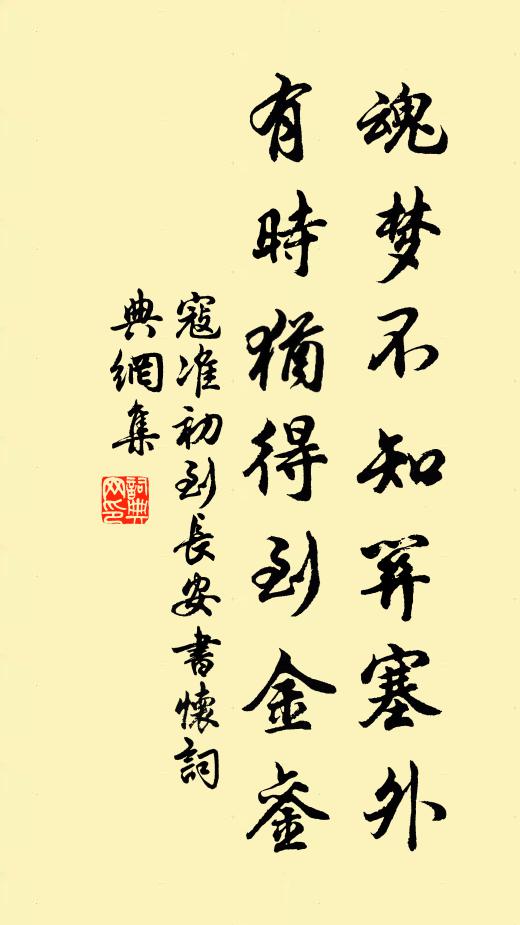 魂梦不知關塞外
有時猶得到金銮
寇准初到長安書懷詞
典網集
詞典
网印